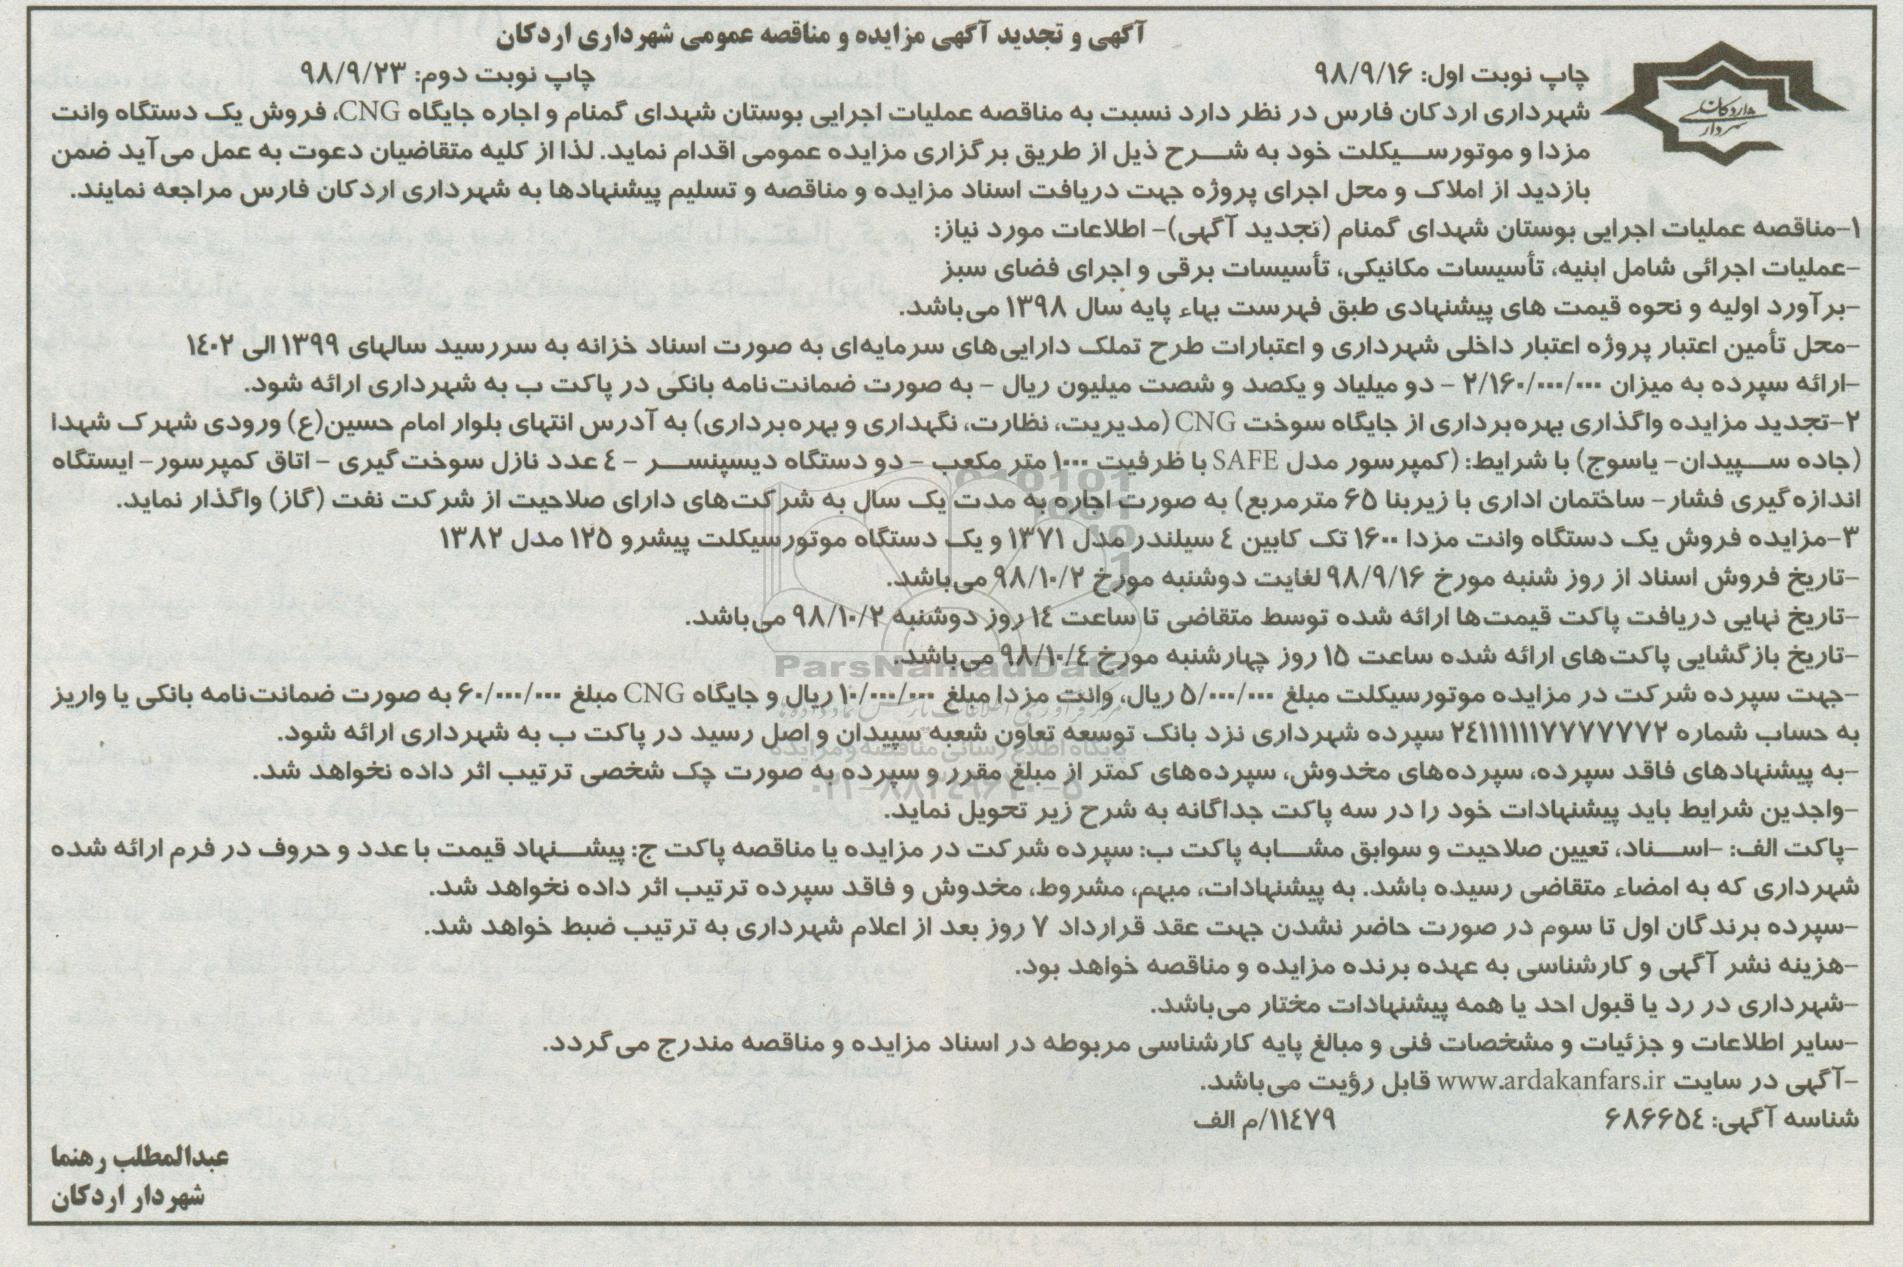 آگهی و تجدید آگهی مزایده و مناقصه عمومی شهرداری اردکان
چاپ نوبت اول: ۹۸/۹/۱۶ چاپ نوبت دوم: ۹۸/۹/۲۳
شهرداری اردکان فارس در نظر دارد نسبت به مناقصه عملیات اجرایی بوستان شهدای گمنام و اجاره جایگاه CNG، فروش یک دستگاه وانت
مزدا و موتورسیکلت خود به شرح ذیل از طریق برگزاری مزایده عمومی اقدام نماید. لذا از کلیه متقاضیان دعوت به عمل می‌آید ضمن
بازدید از املاک و محل اجرای پروژه جهت دریافت اسناد مزایده و مناقصه و تسلیم پیشنهادها به شهرداری اردکان فارس مراجعه نمایند.
۱-مناقصه عملیات اجرایی بوستان شهدای گمنام (تجدید آگهی)- اطلاعات مورد نیاز:
-عملیات اجرائی شامل ابنیه، تأسیسات مکانیکی، تأسیسات برقی و اجرای فضای سبز
-برآورد اولیه و نحوه قیمت های پیشنهادی طبق فهرست بهاء پایه سال ۱۳۹۸ می‌باشد.
-محل تأمین اعتبار پروژه اعتبار داخلی شهرداری و اعتبارات طرح تملک دارایی‌های سرمایه‌ای به صورت اسناد خزانه به سررسید سالهای ۱۳۹۹ الی ۱٤۰۲
-ارائه سپرده به میزان ۲/۱۶۰/۰۰۰/۰۰۰ - دو میلیاد و یکصد و شصت میلیون ریال - به صورت ضمانت‌نامه بانکی در پاکت ب به شهرداری ارائه شود.
۲-تجدید مزایده واگذاری بهره‌برداری از جایگاه سوخت CNG (مدیریت، نظارت، نگهداری و بهره‌برداری) به آدرس انتهای بلوار امام حسین(ع) ورودی شهرک شهدا
(جاده سپیدان- یاسوج) با شرایط: (کمپرسور مدل SAFE با ظرفیت ۱۰۰۰ متر مکعب - دو دستگاه دیسپنسر - ٤ عدد نازل سوخت‌گیری - اتاق کمپرسور- ایستگاه
اندازه‌گیری فشار- ساختمان اداری با زیربنا ۶۵ مترمربع) به صورت اجاره به مدت یک سال به شرکت‌های دارای صلاحیت از شرکت نفت (گاز) واگذار نماید.
۳-مزایده فروش یک دستگاه وانت مزدا ۱۶۰۰ تک کابین ٤ سیلندر مدل ۱۳۷۱ و یک دستگاه موتورسیکلت پیشرو ۱۲۵ مدل ۱۳۸۲
-تاریخ فروش اسناد از روز شنبه مورخ ۹۸/۹/۱۶ لغایت دوشنبه مورخ ۹۸/۱۰/۲ می‌باشد.
-تاریخ نهایی دریافت پاکت قیمت‌ها ارائه شده توسط متقاضی تا ساعت ۱٤ روز دوشنبه ۹۸/۱۰/۲ می‌باشد.
-تاریخ بازگشایی پاکت‌های ارائه شده ساعت ۱۵ روز چهارشنبه مورخ ۹۸/۱۰/٤ می‌باشد.
ParsNamadData
-جهت سپرده شرکت در مزایده موتورسیکلت مبلغ ۵/۰۰۰/۰۰۰ ریال، وانت مزدا مبلغ ۱۰/۰۰۰/۰۰۰ ریال و جایگاه CNG مبلغ ۶۰/۰۰۰/۰۰۰ به صورت ضمانت‌نامه بانکی یا واریز
به حساب شماره ۲٤۱۱۱۱۱۱۱۷۷۷۷۷۷۲ سپرده شهرداری نزد بانک توسعه تعاون شعبه سپیدان و اصل رسید در پاکت ب به شهرداری ارائه شود.
پایگاه اطلاع رسانی مناقصه و مزایده
-به پیشنهادهای فاقد سپرده، سپرده‌های مخدوش، سپرده‌های کمتر از مبلغ مقرر و سپرده به صورت چک شخصی ترتیب اثر داده نخواهد شد.
-واجدین شرایط باید پیشنهادات خود را در سه پاکت جداگانه به شرح زیر تحویل نماید.
-پاکت الف: -اسناد، تعیین صلاحیت و سوابق مشابه پاکت ب: سپرده شرکت در مزایده یا مناقصه پاکت ج: پیشنهاد قیمت با عدد و حروف در فرم ارائه شده
شهرداری که به امضاء متقاضی رسیده باشد. به پیشنهادات، مبهم، مشروط، مخدوش و فاقد سپرده ترتیب اثر داده نخواهد شد.
-سپرده برندگان اول تا سوم در صورت حاضر نشدن جهت عقد قرارداد ۷ روز بعد از اعلام شهرداری به ترتیب ضبط خواهد شد.
-هزینه نشر آگهی و کارشناسی به عهده برنده مزایده و مناقصه خواهد بود.
-شهرداری در رد یا قبول احد یا همه پیشنهادات مختار می‌باشد.
-سایر اطلاعات و جزئیات و مشخصات فنی و مبالغ پایه کارشناسی مربوطه در اسناد مزایده و مناقصه مندرج می‌گردد.
-آگهی در سایت www.ardakanfars.ir قابل رؤیت می‌باشد.
شناسه آگهی: ۶۸۶۶۵٤ ۱۱٤۷۹/م الف
عبدالمطلب رهنما
شهردار اردکان